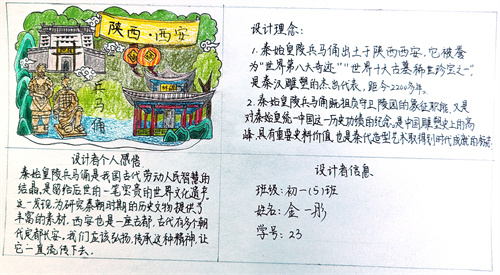 陕西·西安
兵马俑
设计理念：
1.秦始皇陵兵马俑出土于陕西西安，它被誉
为“世界第八大奇迹”“世界十大古墓稀世珍宝之一”，
是秦汉雕塑的杰出代表，距今2200多年。
2.秦始皇陵兵马俑既担负守卫陵园的象征职能，又是
对秦始皇统一中国这一历史功绩的纪念，是中国雕塑史上的高
峰，具有重要史料价值，也是秦代造型艺术取得划时代成就的标志。
设计者个人感悟
秦始皇陵兵马俑是我国古代劳动人民智慧的
结晶，是留给后世的一笔宝贵的世界文化遗产。
这一发现，为研究秦朝时期的历史文物提供了
丰富的素材。西安也是一座古都，古代有多个朝
代定都长安。我们应该弘扬、传承这种精神，让
它一直流传下去。
设计者信息
班级：初一(5)班
姓名：金一彤
学号：23